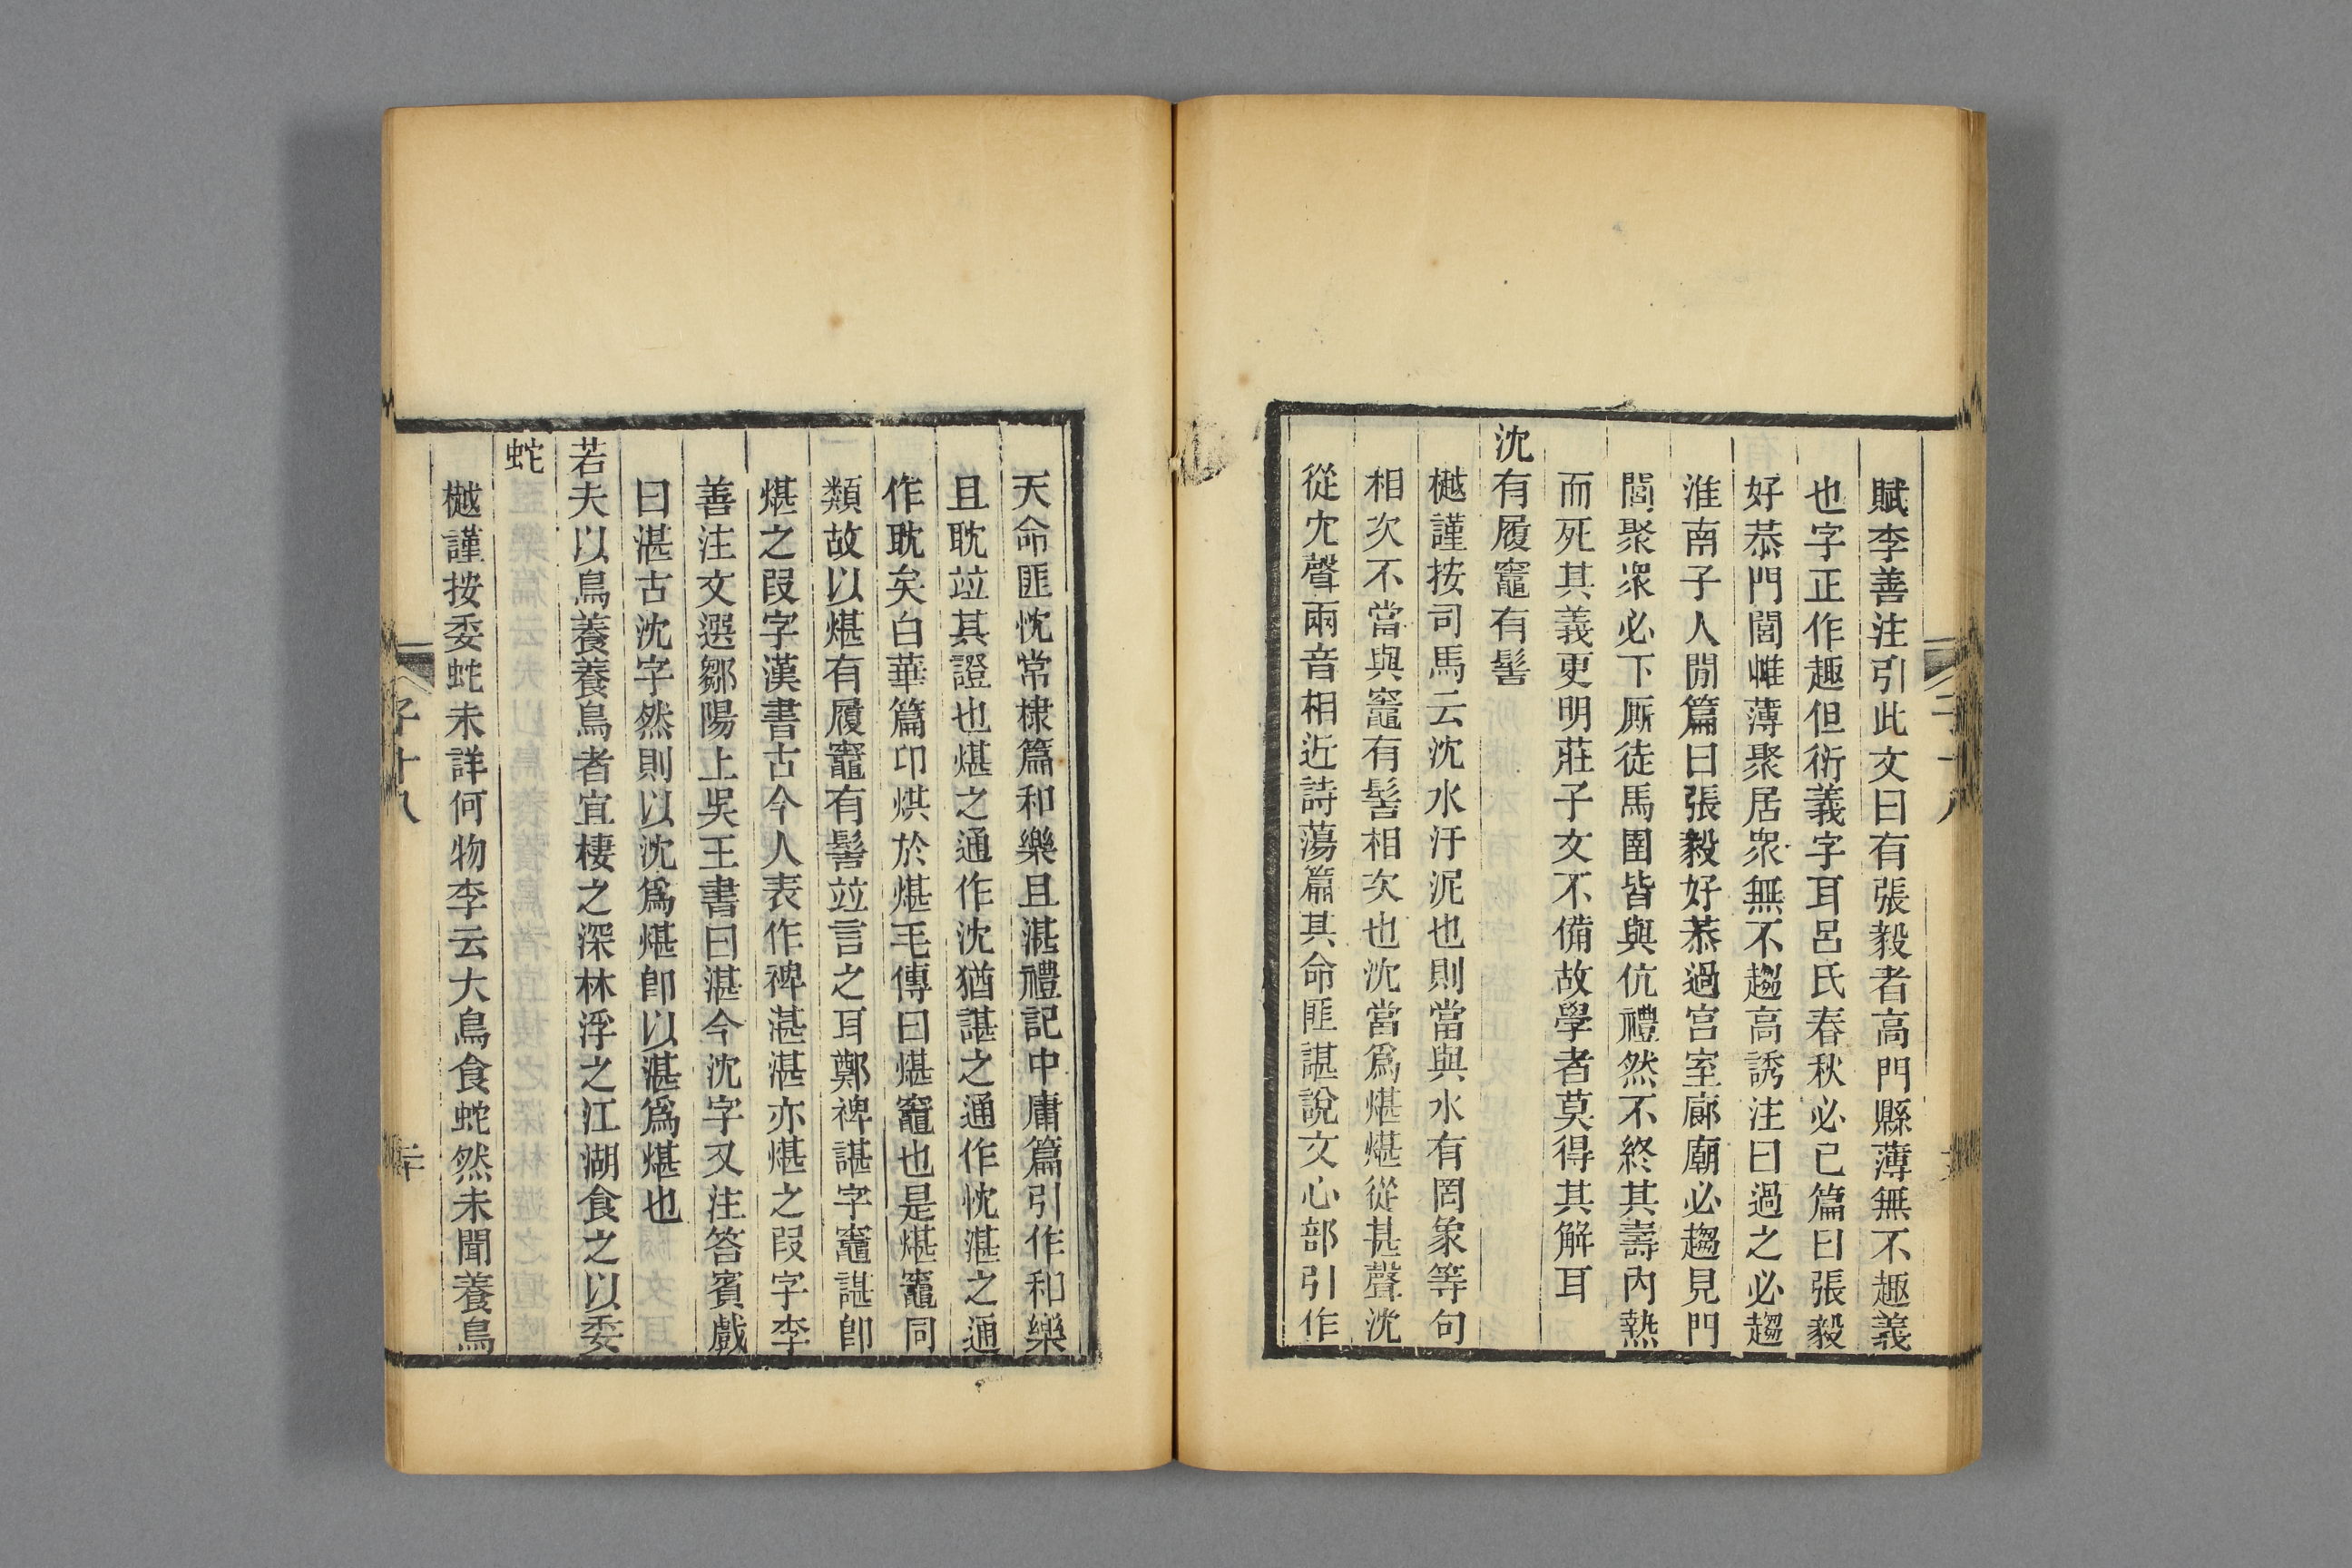 賦李善注引此文曰有張毅者高門縣薄無不趣義
也字正作趣但衍義字耳呂氏春秋必己篇曰張毅
好恭門閭帷薄聚居眾無不趨高誘注曰過之必趨
淮南子人閒篇曰張毅好恭過宮室廊廟必趨見門
閭聚眾必下厮徒馬圉皆與伉禮然不終其壽內熱
而死其義更明莊子文不備故學者莫得其解耳
沈有履竈有髻
樾謹按司馬云沈水汙泥也則當與水有罔象等句
相次不當與竈有髻相次也沈當爲煁煁從甚聲沈
從冘聲兩音相近詩蕩篇其命匪諶說文心部引作
天命匪忱常棣篇和樂且湛禮記中庸篇引作和樂
且耽竝其證也煁之通作沈猶諶之通作忱湛之通
作耽矣白華篇卬烘於煁毛傳曰煁竈也是煁竈同
類故以煁有履竈有髻竝言之耳鄭裨諶字竈諶卽
煁之叚字漢書古今人表作裨湛湛亦煁之叚字李
善注文選鄒陽上吳王書曰湛今沈字又注答賓戲
曰湛古沈字然則以沈爲煁卽以湛爲煁也
若夫以鳥養養鳥者宜棲之深林浮之江湖食之以委
蛇
樾謹按委蛇未詳何物李云大鳥食蛇然未聞養鳥
子十八
二十